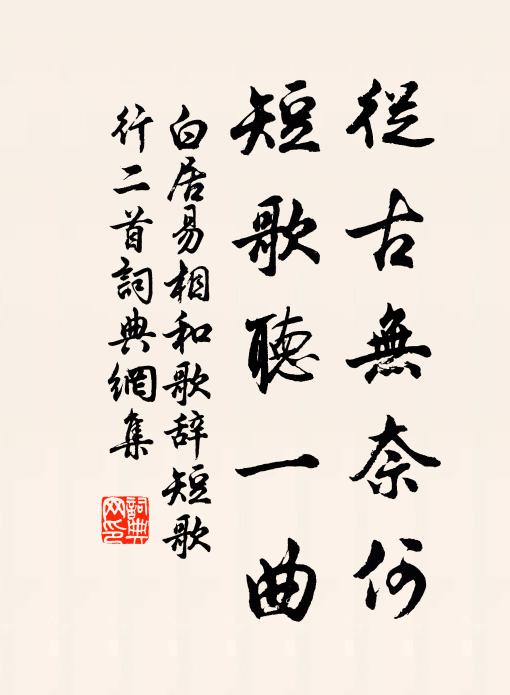 從古無奈何
短歌聽一曲
白居易相和歌辞短歌
行二首詞典網集
詞典
网印